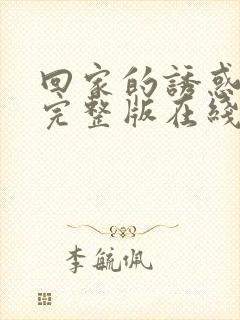 回家的誘惑
完整版在綫
李毓佩